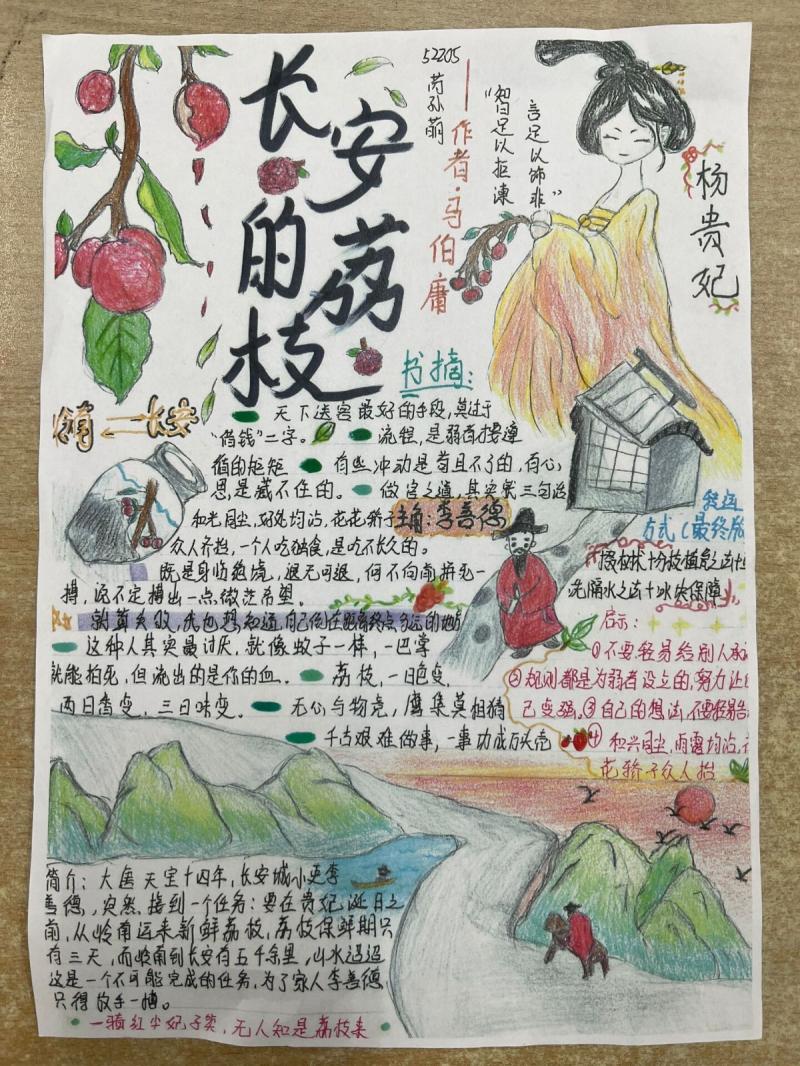 长安的荔枝
52205
芮孙萌
作者·马伯庸
“智足以拒谏
言足以饰非”
杨贵妃
岭南 长安
书摘：
天下送宫最好的手段，莫过于
“借钱”二字。 流程，是弱者才要遵
循的规矩 有些冲动是苟且不了的，有心
思是藏不住的。 做官之道，其实就三句话
和光同尘，好处均沾，花花轿子
众人齐抬，一个人吃独食，是吃不长久的。
主角：李善德
既是身临绝境，退无可退，何不向前拼死一
搏，说不定搏出一点微茫希望。
就算失败，我也想知道，自己倒在距离终点多远的地方
这种人其实最讨厌，就像蚊子一样，一巴掌
就能拍死，但流出的是你的血。 荔枝，一日色变，
两日香变，三日味变。 无心与物竞，鹰隼莫相猜
千古艰难做事，一事功成万头秃
转运
方式（最终版
隔水之法+冰块保障
启示：
①不要轻易给别人承诺
②规则都是为弱者设立的，努力让自
己变强。③自己的想法，不要轻易告
④ 和兴同尘，雨露均沾，花
花骄子众人抬
简介：大唐天宝十四年，长安城小吏李
善德，突然接到一个任务：要在贵妃诞日之
前，从岭南运来新鲜荔枝，荔枝保鲜期只
有三天，而岭南到长安有五千余里，山水迢迢
这是一个不可能完成的任务，为了家人李善德
只得放手一搏。
一骑红尘妃子笑，无人知是荔枝来